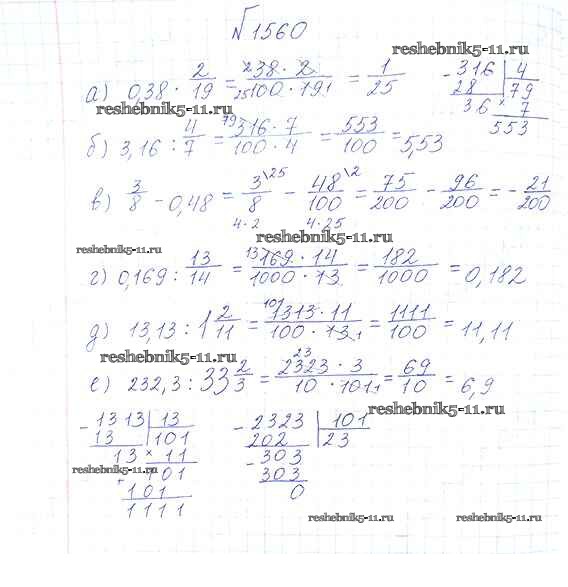 №1560
reshebnik5-11.ru
а) 0,38 · 2/19 = 38 · 2 / 100 · 19 = 1/25
- 316 | 4
28 | 79
36 × 7
553
reshebnik5-11.ru
б) 3,16 : 4/7 = 316 · 7 / 100 · 4 = 553/100 = 5,53
в) 3/8 - 0,48 = 3/8 \25 - 48/100 \2 = 75/200 - 96/200 = - 21/200
4·2 4·25
reshebnik5-11.ru
reshebnik5-11.ru
г) 0,169 : 13/14 = 169 · 14 / 1000 · 13 = 182/1000 = 0,182
д) 13,13 : 1 2/11 = 1313 · 11 / 100 · 13 = 1111/100 = 11,11
reshebnik5-11.ru
е) 232,3 : 33 2/3 = 2323 · 3 / 10 · 101 = 69/10 = 6,9
reshebnik5-11.ru
- 1313 | 13 - 2323 | 101
13 | 101 202 | 23
13 × 11 - 303
reshebnik5-11.ru
101 303
+ 101 0
1111
reshebnik5-11.ru reshebnik5-11.ru